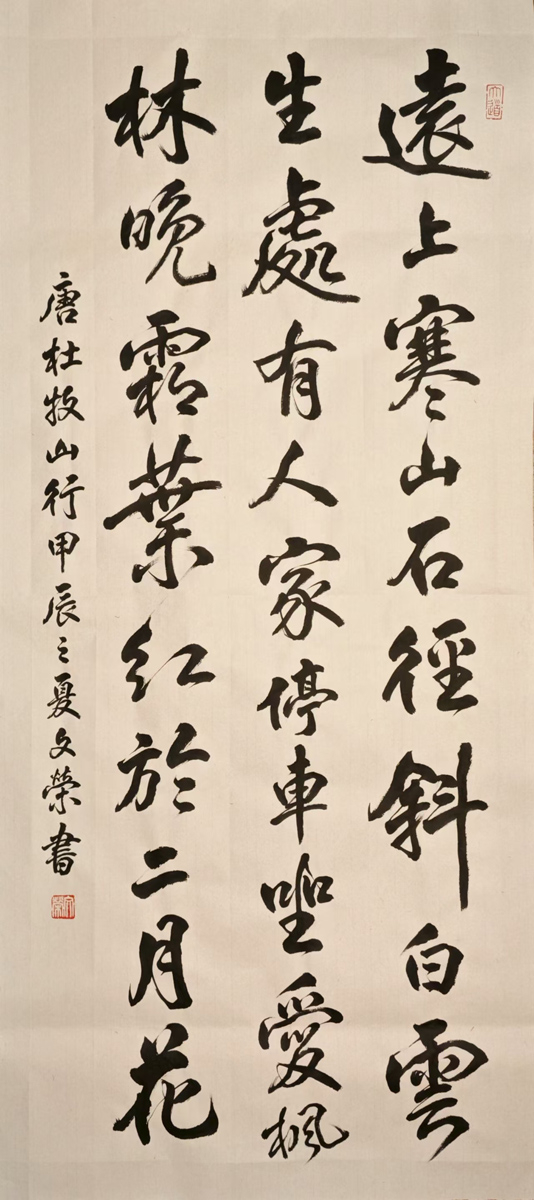 遠上寒山石徑斜白雲
生處有人家停車坐愛楓
林晚霜葉紅於二月花
唐杜牧山行甲辰之夏文榮書